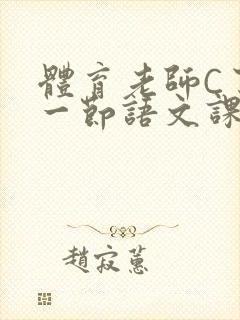 體育老師C了
一節語文課
趙寂蕙